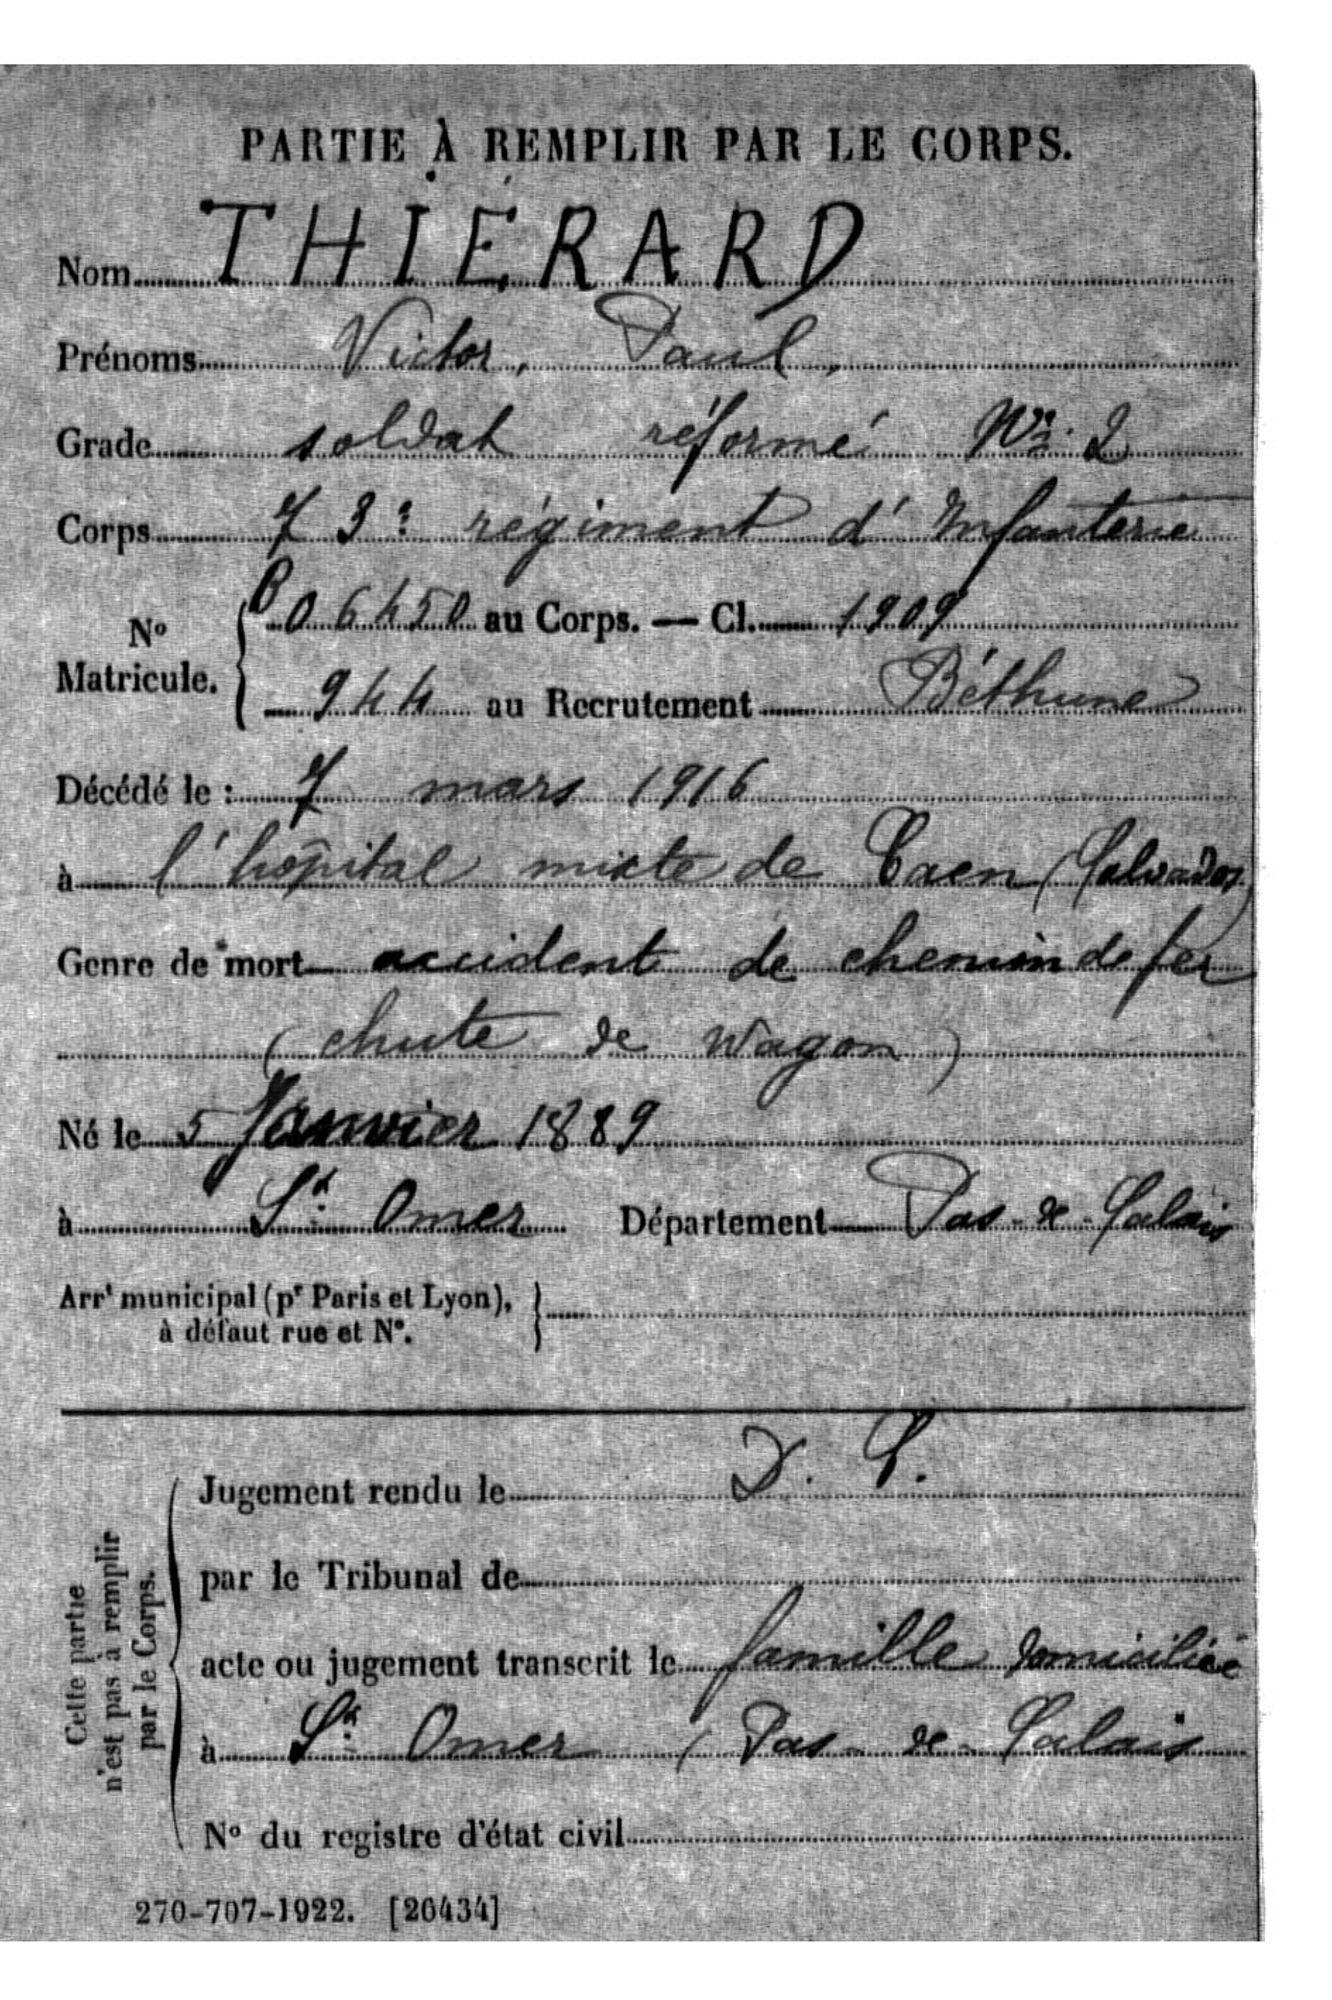 PARTIE À REMPLIR PAR LE CORPS.
Nom THIÉRARD
Prénoms Victor, Paul,
Grade soldat réformé No 2
Corps 73e régiment d'Infanterie
No Matricule. B 06450 au Corps. — Cl. 1909
944 au Recrutement Béthune
Décédé le : 7 mars 1916
à l'hôpital mixte de Caen (Calvados)
Genre de mort accident de chemin de fer
(chute de wagon)
Né le 5 Janvier 1889
à St. Omer Département Pas-de-Calais
Arrt municipal (pr Paris et Lyon),
à défaut rue et No.
Cette partie n'est pas à remplir par le Corps.
Jugement rendu le
par le Tribunal de
acte ou jugement transcrit le famille domiciliée
à St. Omer (Pas-de-Calais
No du registre d'état civil
270-707-1922. [26434]